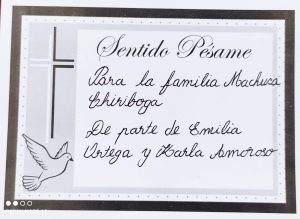 Sentido Pésame
Para la familia Machuca
Chiriboga
De parte de Emilia
Ortega y Karla Amoroso